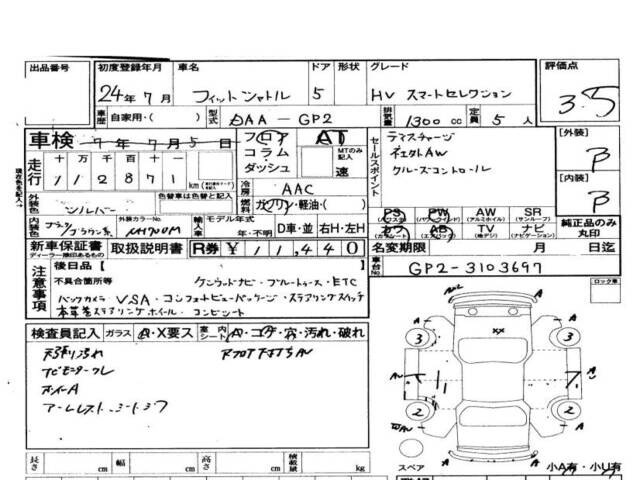 出品番号
初度登録年月
車名
ドア
形状
グレード
評価点
24年7月
フィットシャトル
5
HV スマートセレクション
3.5
車歴
自家用・( )
型式
DAA-GP2
排気量
1300cc
定員
5人
車検
7年7月5日
フロア
コラム・
ダッシュ
AT
MTのみ記入
速
セールスポイント
クルーズコントロール
[外装]
B
走行
十万千百十一
112871
km
現在車を記入→
[内装]
B
外装色
シルバー
色替車は色替と記入
冷房
AAC
燃料
ガソリン・軽油・( )
PS
PW
AW
SR
(パワーウィンド)
(アルミホイル)
(サンルーフ)
AB
TV
ナビ
(エアバッグ)
(ナビゲーション)
純正品のみ
丸印
内装色
ブラック/ブラウン系
外装カラーNo.
NH700M
輸入車
モデル年式
年・不明
D車・並
右H・左H
新車保証書
ディーラー捺印あるもの
取扱説明書
R券
¥11,440
名変期限
月
日迄
車台No.
GP2-3103697
ロック車
注意事項
後日品[ ]
不具合箇所等
ケンウッドナビ・ブルートゥース・ETC
バックカメラ・VSA・コンフォートビューパッケージ・ステアリングスイッチ
本革巻ステアリングホイール・コンビシート
検査員記入
ガラス
A・X要ス
室内シート
A・コゲ・穴・汚れ・破れ
天張り汚れ
ホイールA
アームレスト、シートシワ
A
A
A
3
3
XX
A
A
2
2
A
A
A
A
長さ
cm
幅
cm
高さ
cm
積載量
kg
スペア
小A有・小U有